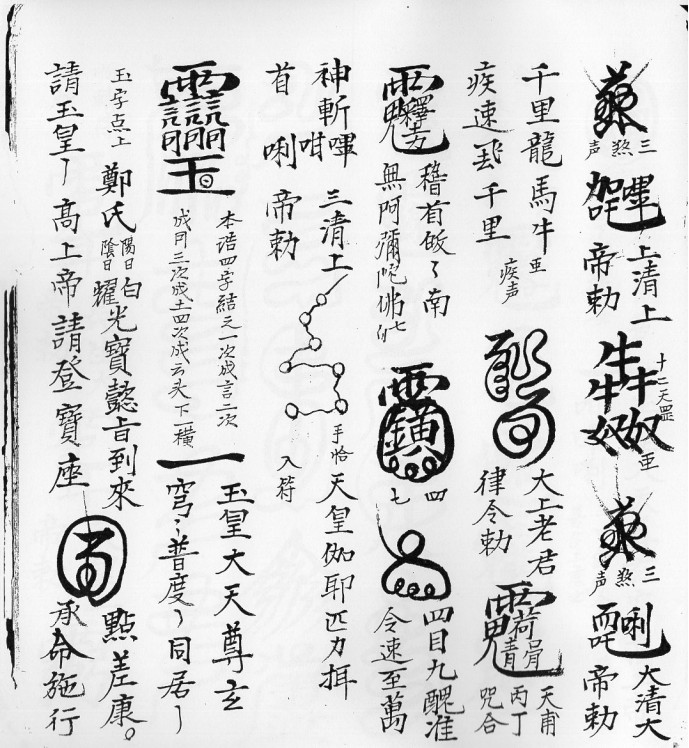 三煞声
上清上
帝勅
十二天罡
亚
三煞声
唎
大清大
帝勅
千里龍馬牛亚
疾速千里疾声
大上老君
律令勅
天甫
丙丁
咒合
稽首皈〻南
無阿彌陀佛七
四
七
四目九醜准
令速至萬
神斬嗶咁
首唎帝勅
三清上
手恰
天皇伽耶匹力揖
入符
本浩四字結之一次成言二次
成门三次成土四次成云头下一横
玉皇大天尊玄
穹〻普度〻同居〻
玉字点上
鄭氏陽日白
陰日耀光寶懿旨到來
點差康。
請玉皇〻高上帝請登寶座
承命施行